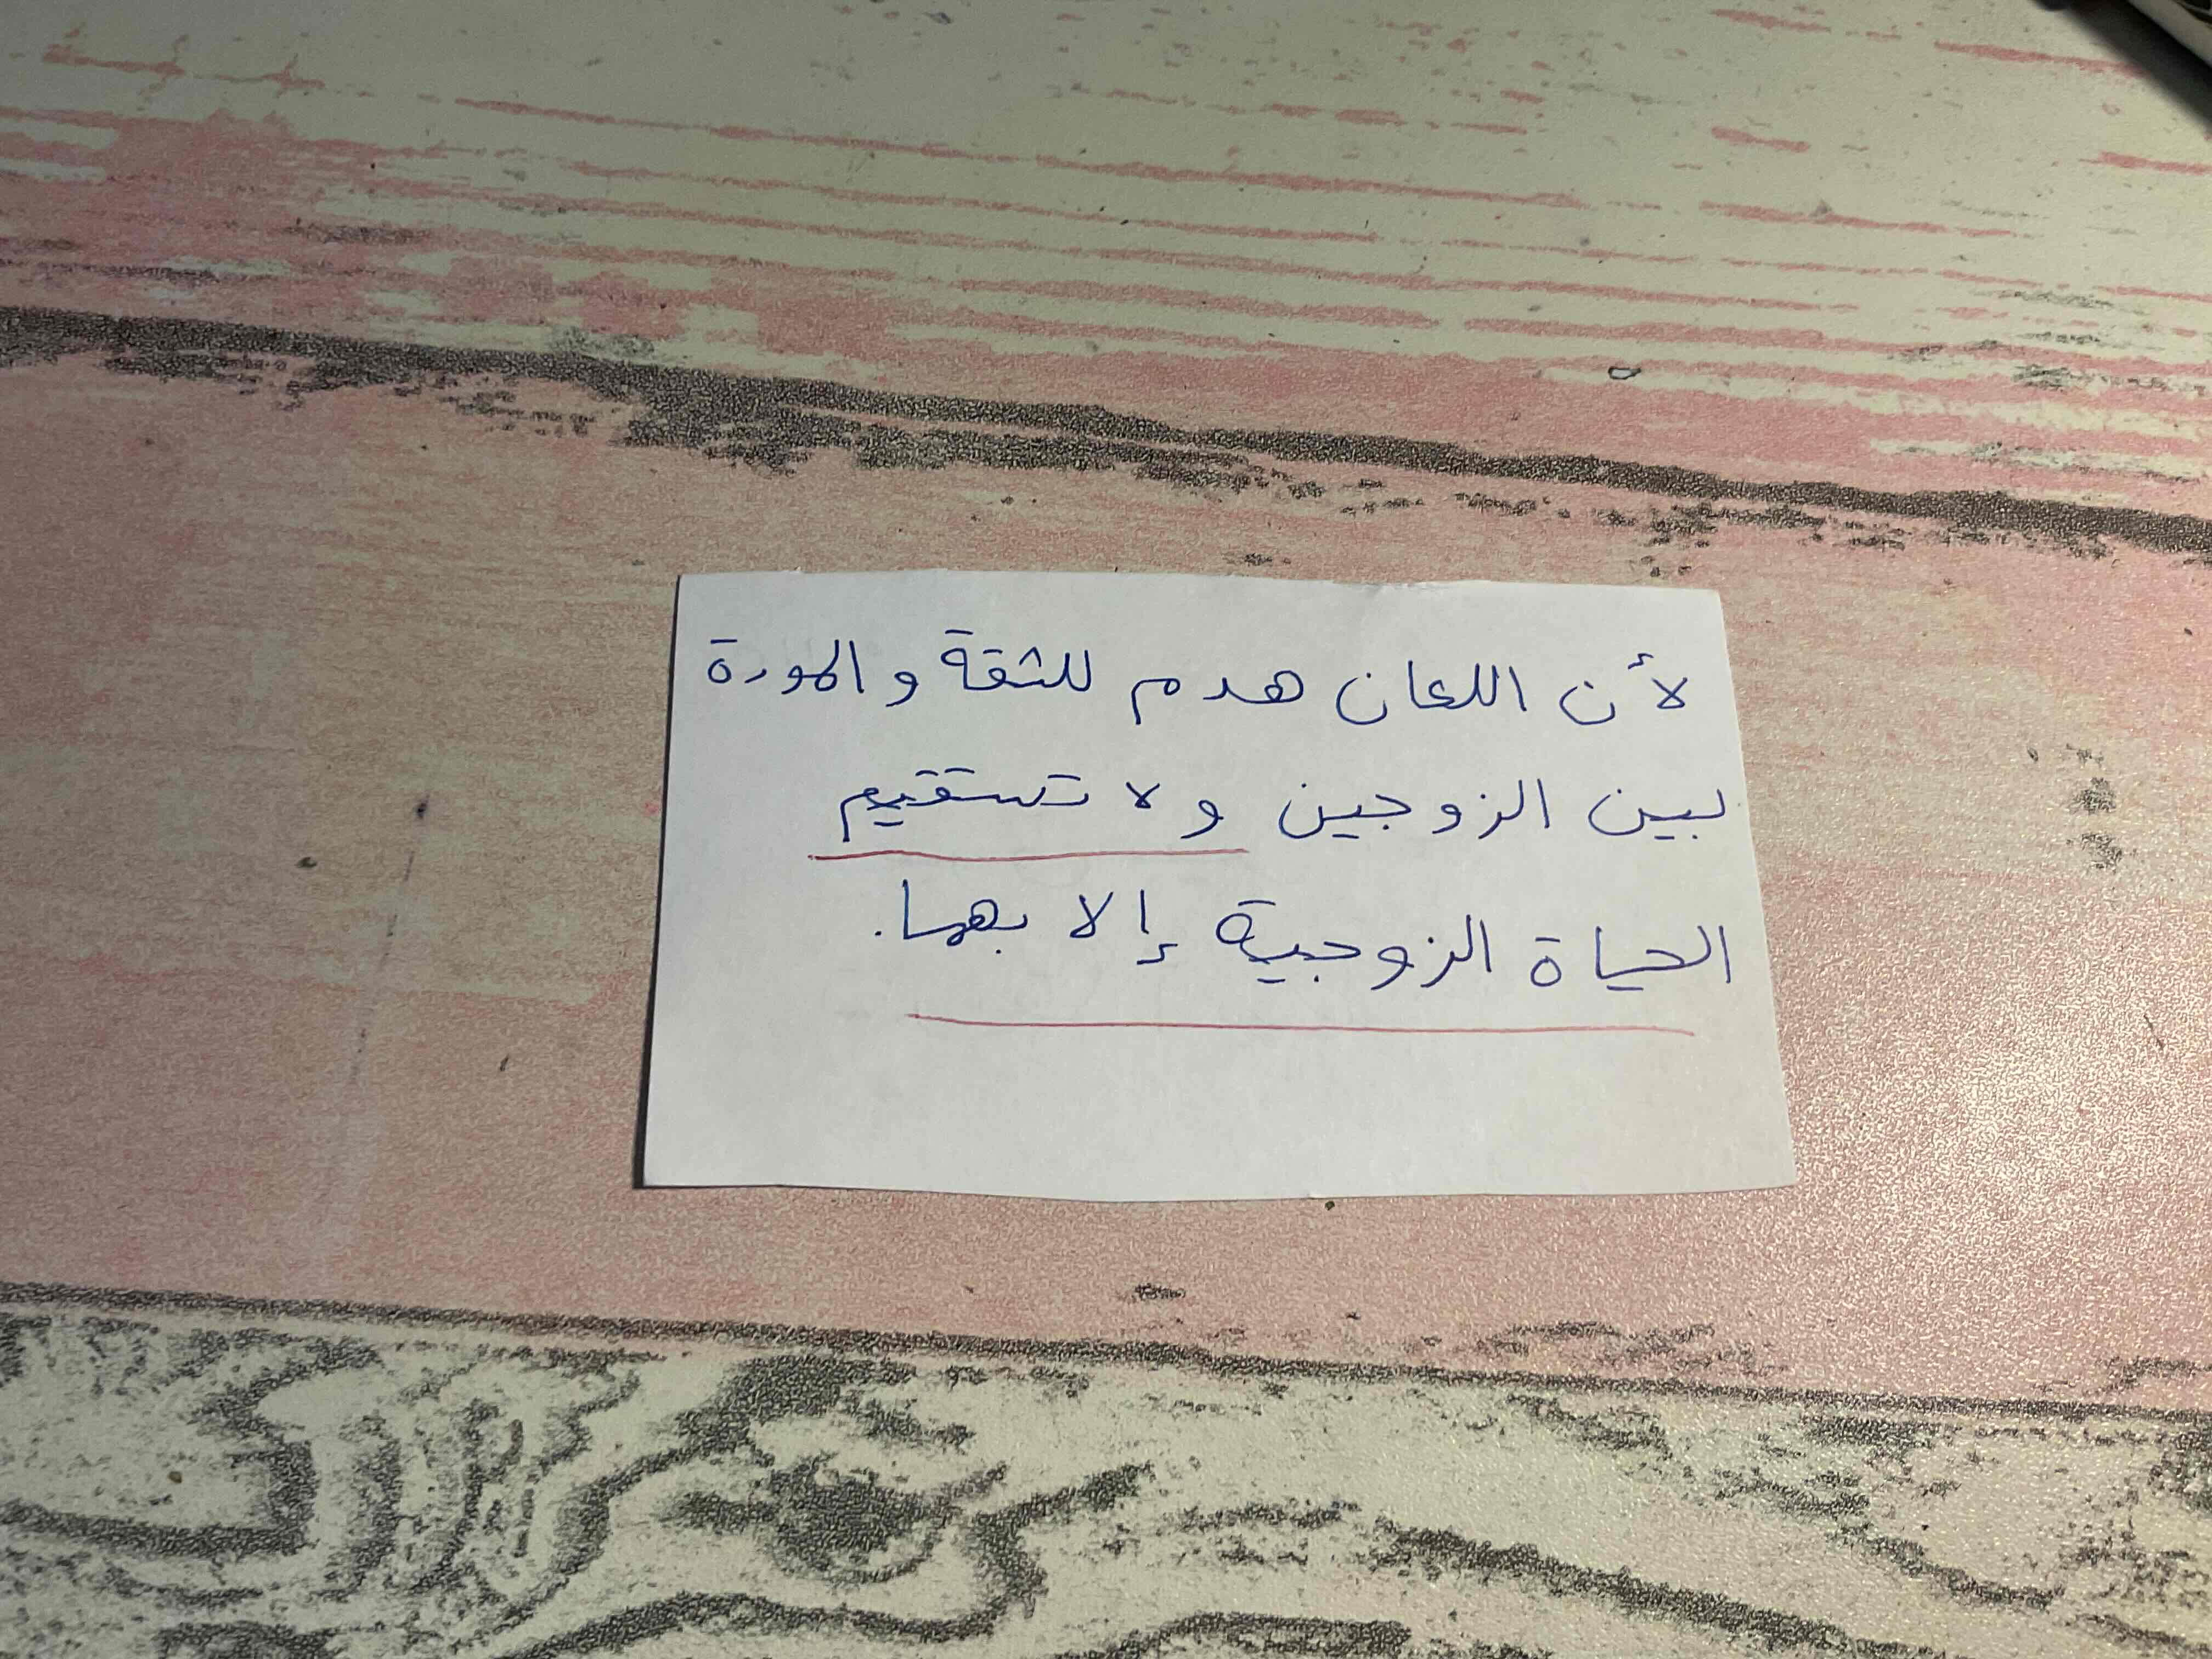 لأن اللعان هدم للثقة والمودة
بين الزوجين ولا تستقيم
الحياة الزوجية إلا بهما.